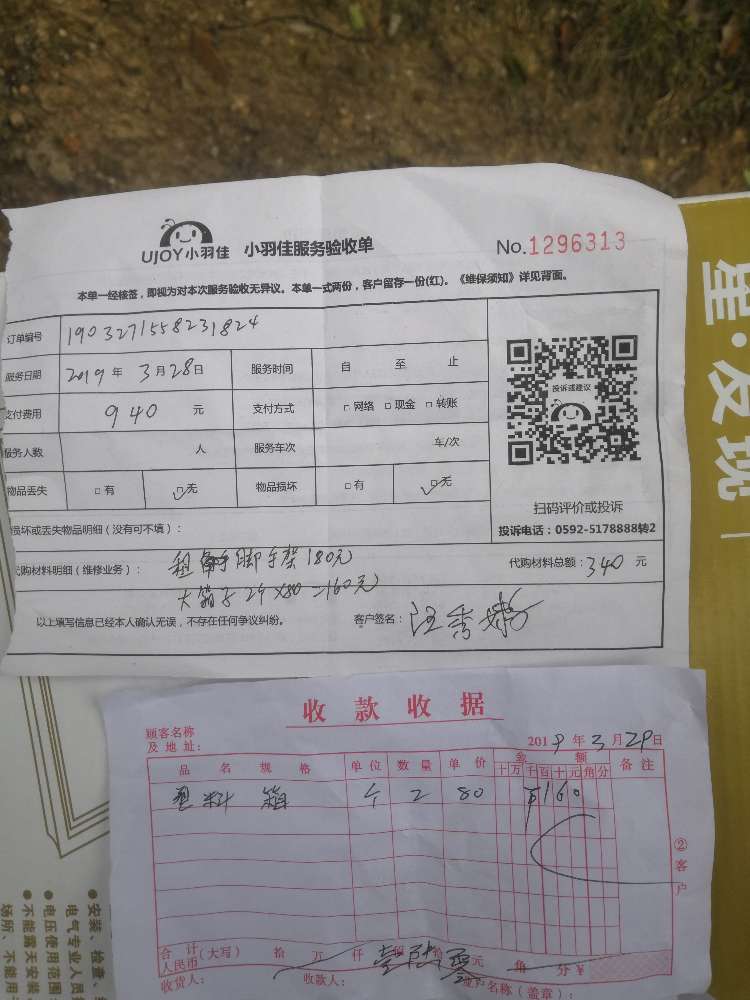 UJOY小羽佳 小羽佳服务验收单 No.1296313
本单一经核签，即视为对本次服务验收无异议。本单一式两份，客户留存一份(红)。《维保须知》详见背面。
订单编号 1903271558231824
服务日期 2019年3月28日 服务时间 自 至 止
支付费用 940 元 支付方式 □网络 □现金 □转账
服务人数 人 服务车次 车/次
物品丢失 □有 □无 物品损坏 □有 □无
投诉或建议
扫码评价或投诉
投诉电话：0592-5178888转2
损坏或丢失物品明细（没有可不填）：
代购材料明细（维修业务）： 租 脚手架180元 代购材料总额：340 元
大箱子2个×80=160元
以上填写信息已经本人确认无误，不存在任何争议纠纷。 客户签名：汪秀
收款收据
顾客名称
及地址：
2019年3月29日
品名规格 单位 数量 单价 金额 备注
十万千百十元角分
塑料箱 个 2 80 160
②客户
合计人民币(大写) 拾 万 仟 壹 佰 陆 拾 零 元 角 分 ¥
收货人： 收款人： 客户名称(盖章)：
星·发现
●安装、检查、
电气专业人员
●电压使用范围
●不能露天安装
场所、不能用